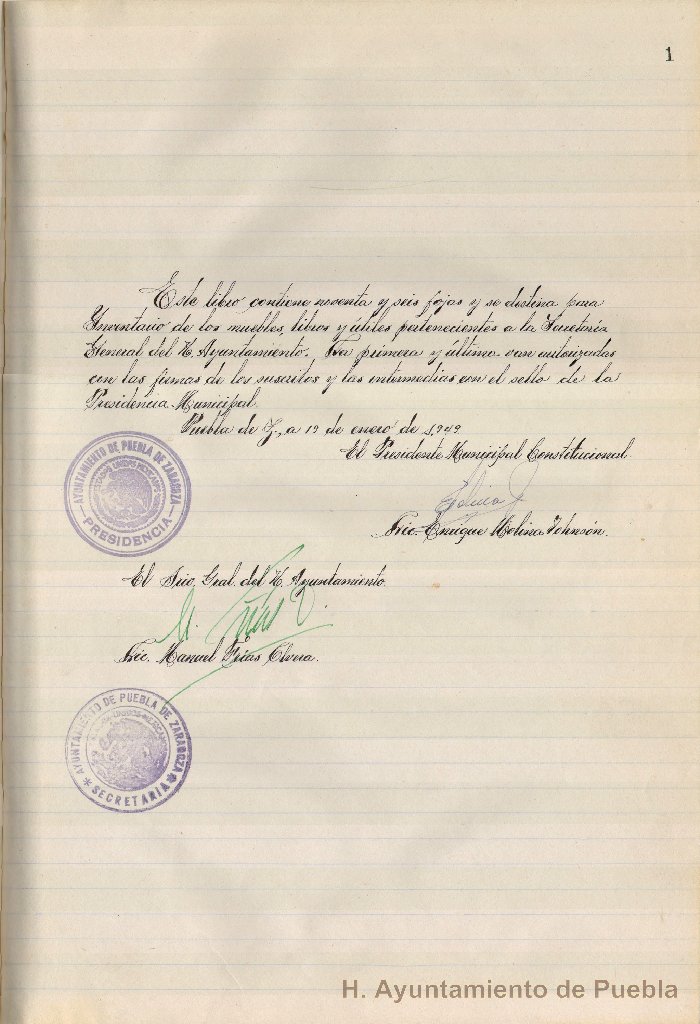 1
Este libro contiene noventa y seis fojas y se destina para
Inventario de los muebles, libros y útiles pertenecientes a la Secretaría
General del H. Ayuntamiento. La primera y última van autorizadas
con las firmas de los suscritos y las intermedias con el sello de la
Presidencia Municipal.
Puebla de Z., a 19 de enero de 1,949.
El Presidente Municipal Constitucional.
AYUNTAMIENTO DE PUEBLA DE ZARAGOZA
ESTADOS UNIDOS MEXICANOS
PRESIDENCIA
Lic. Enrique Molina Johnson.
El Srio. Gral. del H. Ayuntamiento.
Lic. Manuel Frías Olvera.
AYUNTAMIENTO DE PUEBLA DE ZARAGOZA
SECRETARIA
H. Ayuntamiento de Puebla